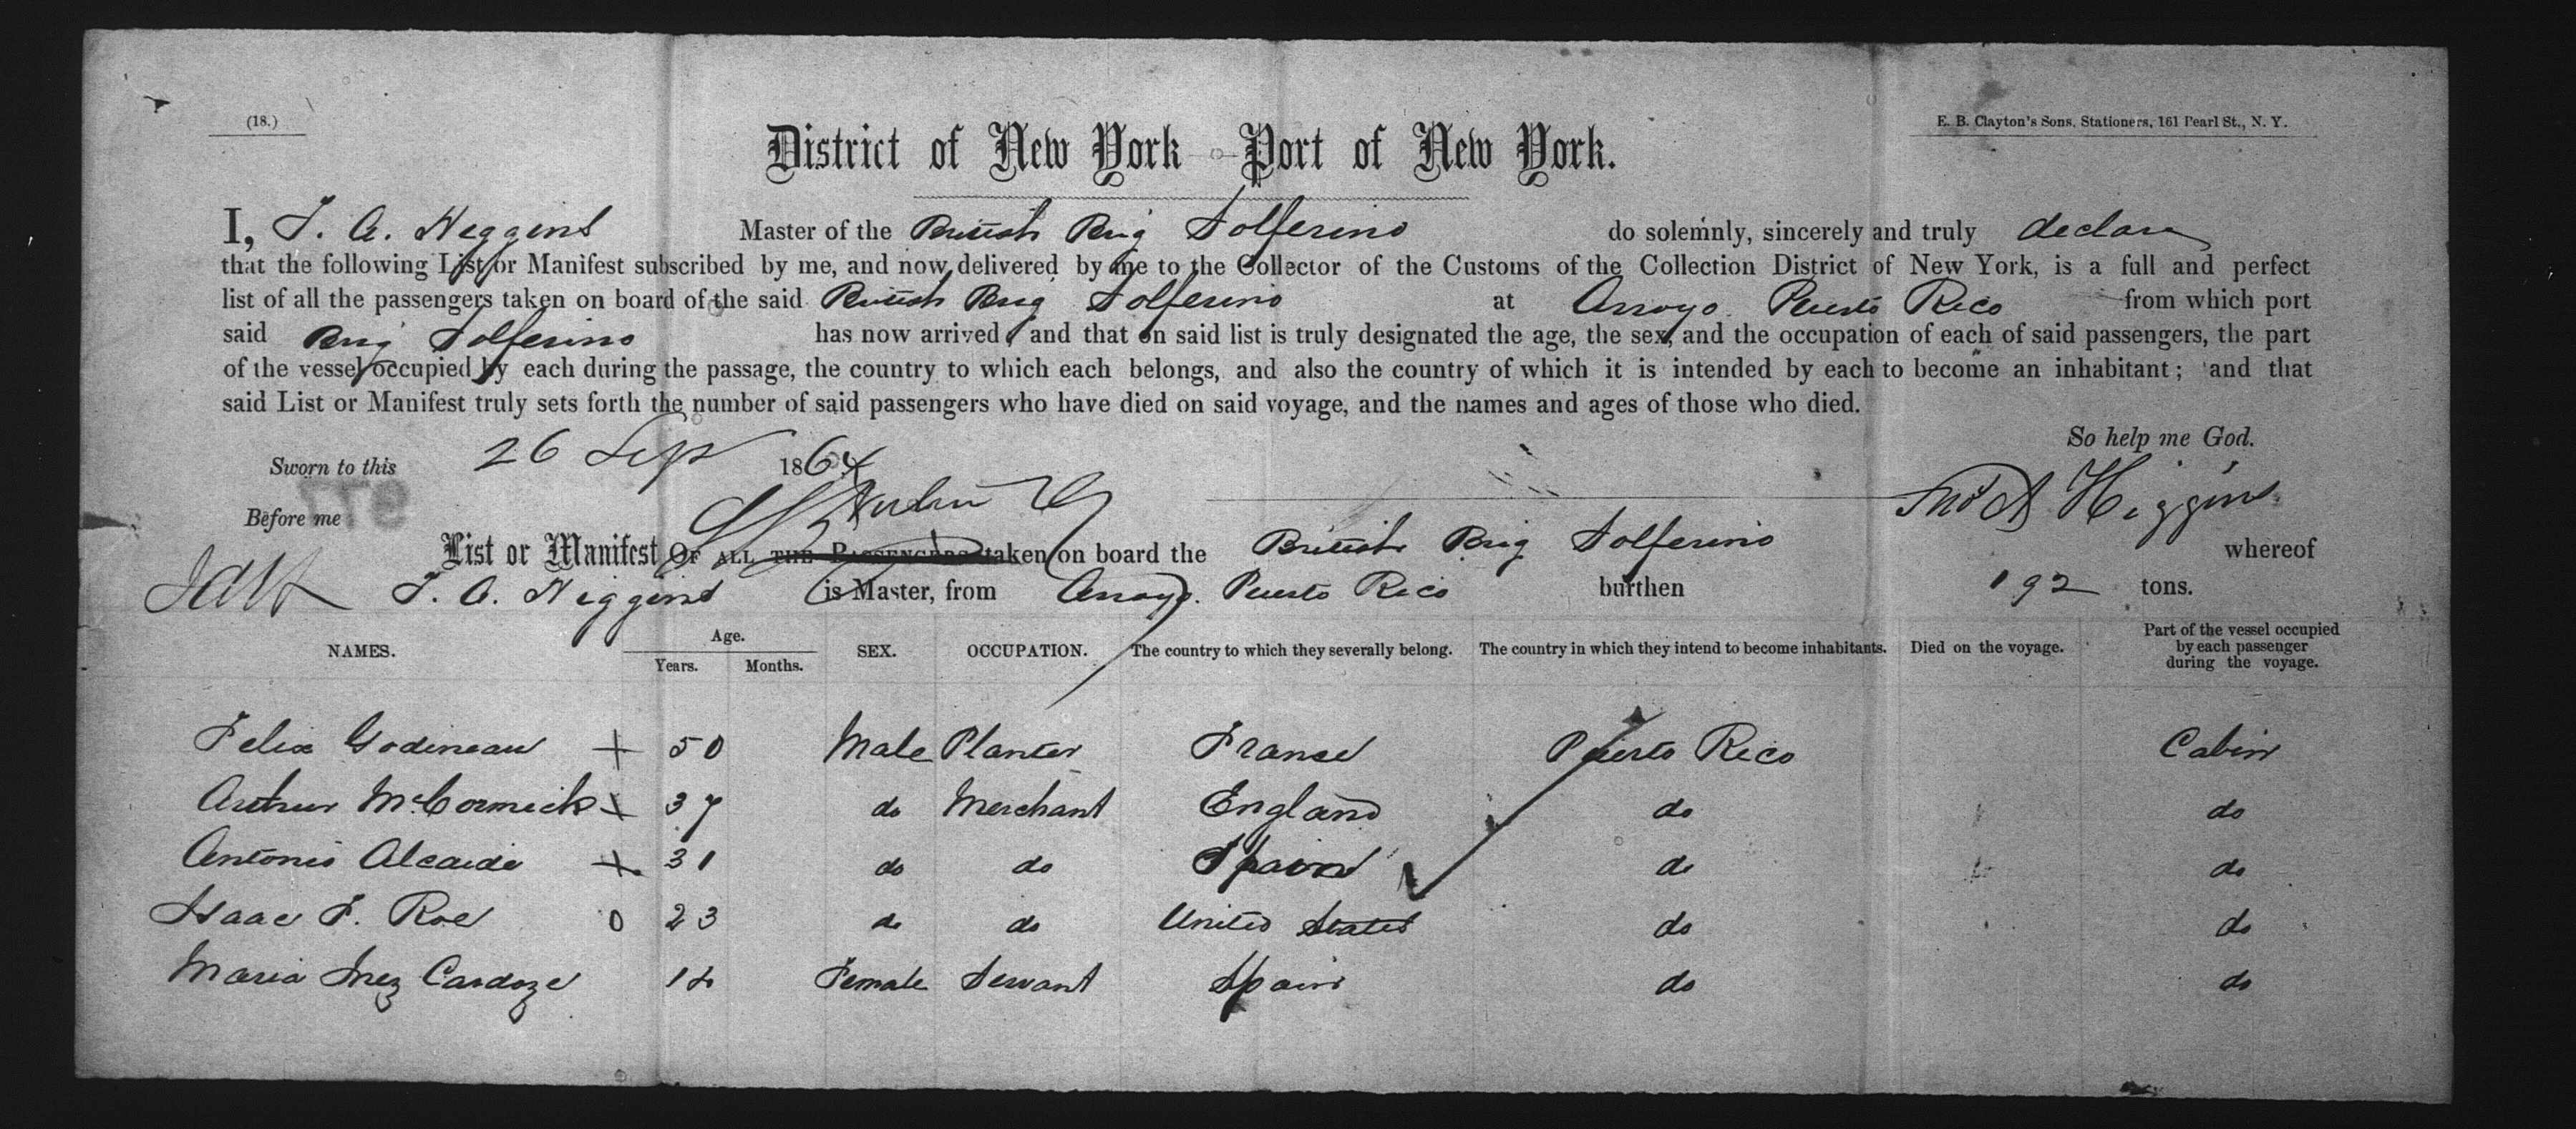 (18.)
E. B. Clayton's Sons, Stationers, 161 Pearl St., N. Y.
District of New York Port of New York.
I, T. A. Higgins Master of the British Brig Solferino do solemnly, sincerely and truly declare
that the following List or Manifest subscribed by me, and now delivered by me to the Collector of the Customs of the Collection District of New York, is a full and perfect
list of all the passengers taken on board of the said British Brig Solferino at Arroyo Puerto Rico from which port
said Brig Solferino has now arrived; and that on said list is truly designated the age, the sex, and the occupation of each of said passengers, the part
of the vessel occupied by each during the passage, the country to which each belongs, and also the country of which it is intended by each to become an inhabitant; and that
said List or Manifest truly sets forth the number of said passengers who have died on said voyage, and the names and ages of those who died.
So help me God.
Sworn to this 26 Sep 1864
977
Thos A Higgins
Before me
List or Manifest OF ALL THE PASSENGERS taken on board the British Brig Solferino whereof
T. A. Higgins is Master, from Arroyo. Puerto Rico burthen 192 tons.
NAMES. Age. Years. Months. SEX. OCCUPATION. The country to which they severally belong. The country in which they intend to become inhabitants. Died on the voyage. Part of the vessel occupied by each passenger during the voyage.
Felix Godineau + 50 Male Planter Franse Puerto Rico Cabin
Arthur McCormick + 37 do Merchant England do do
Antonio Alcaide + 31 do do Spain do do
Isaac F. Roe 0 23 do do United States do do
Maria Inez Cardoze Female Servant Spain do do